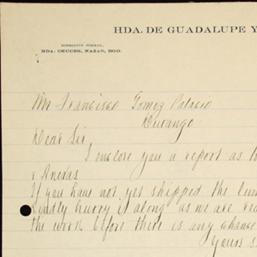 HDA. DE GUADALUPE Y
HDA. CRUCES, NAZAS, DGO.
Mr Francisco Gomez Palacio
Durango
Dear Sir,
I enclose you a report as to
If you have not yet shipped the
kindly hurry it along as we are
the work before there is any chance
Yours